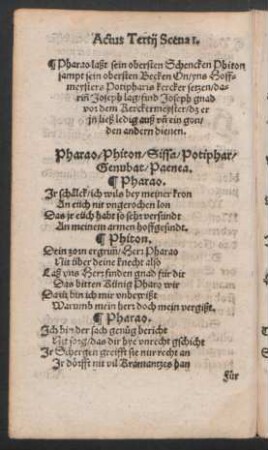 Actus Tertij Scena 1.
¶ Pharao laßt sein obersten Schencken Phiton
sampt sein obersten Becken Onyns Hoff-
meysters Potipharis kercker setzen/ da-
riñ Joseph lag/ find Joseph gnad
vor dem Kerckermeyster/ dz er
jn ließ ledig auß vñ ein gon/
den andern dienen.
Pharao/ Phiton/ Sissa/ Potiphar/
Genubat/ Paenea.
¶ Pharao.
Ir schälck/ ich wils bey meiner kron
An euch nit vngerochen lon
Das jr eüch habt so sehr versindt
An meinem armen hoffgesindt.
¶ Phiton.
Dein zorn ergrim/ Herr Pharao
Nit über deine knecht also
Laß yns Herr finden gnad für dir
Das bitten Künig Pharo wir
Dañ bin ich mir vnbewißt
Warumb mein herr doch mein vergißt.
¶ Pharao.
Ich bin der sach genüg bericht
Nit sorg/ das dir hye vnrecht gschicht
Ir Schergen greifft sie nur recht an
Ir dörfft nit vil Kramantzes han
Für